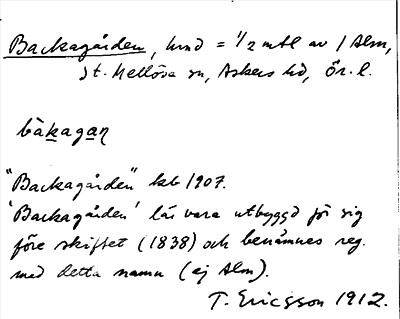 Backagården, hmd = 1/2 mtl av 1 Alm,
St. Mellösa sn, Askers hd, Ör. l.
bàkagan
"Backagården" kb 1907.
'Backagården' lär vara utbyggd för sig
före skiftet (1838) och benämnes reg.
med detta namn (ej Alm).
T. Ericsson 1912.